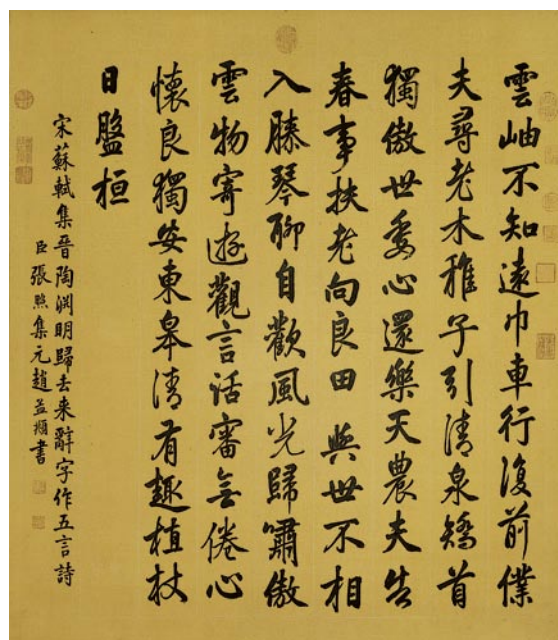 雲岫不知遠巾車行復前僕
夫尋老木稚子引清泉矯首
獨傲世委心還樂天農夫告
春事扶老向良田與世不相
入膝琴聊自歡風光歸嘯傲
雲物寄遊觀言話審無倦心
懷良獨安東皋清有趣植杖
日盤桓
宋蘇軾集晉陶淵明歸去来辭字作五言詩
臣張照集元趙孟頫書